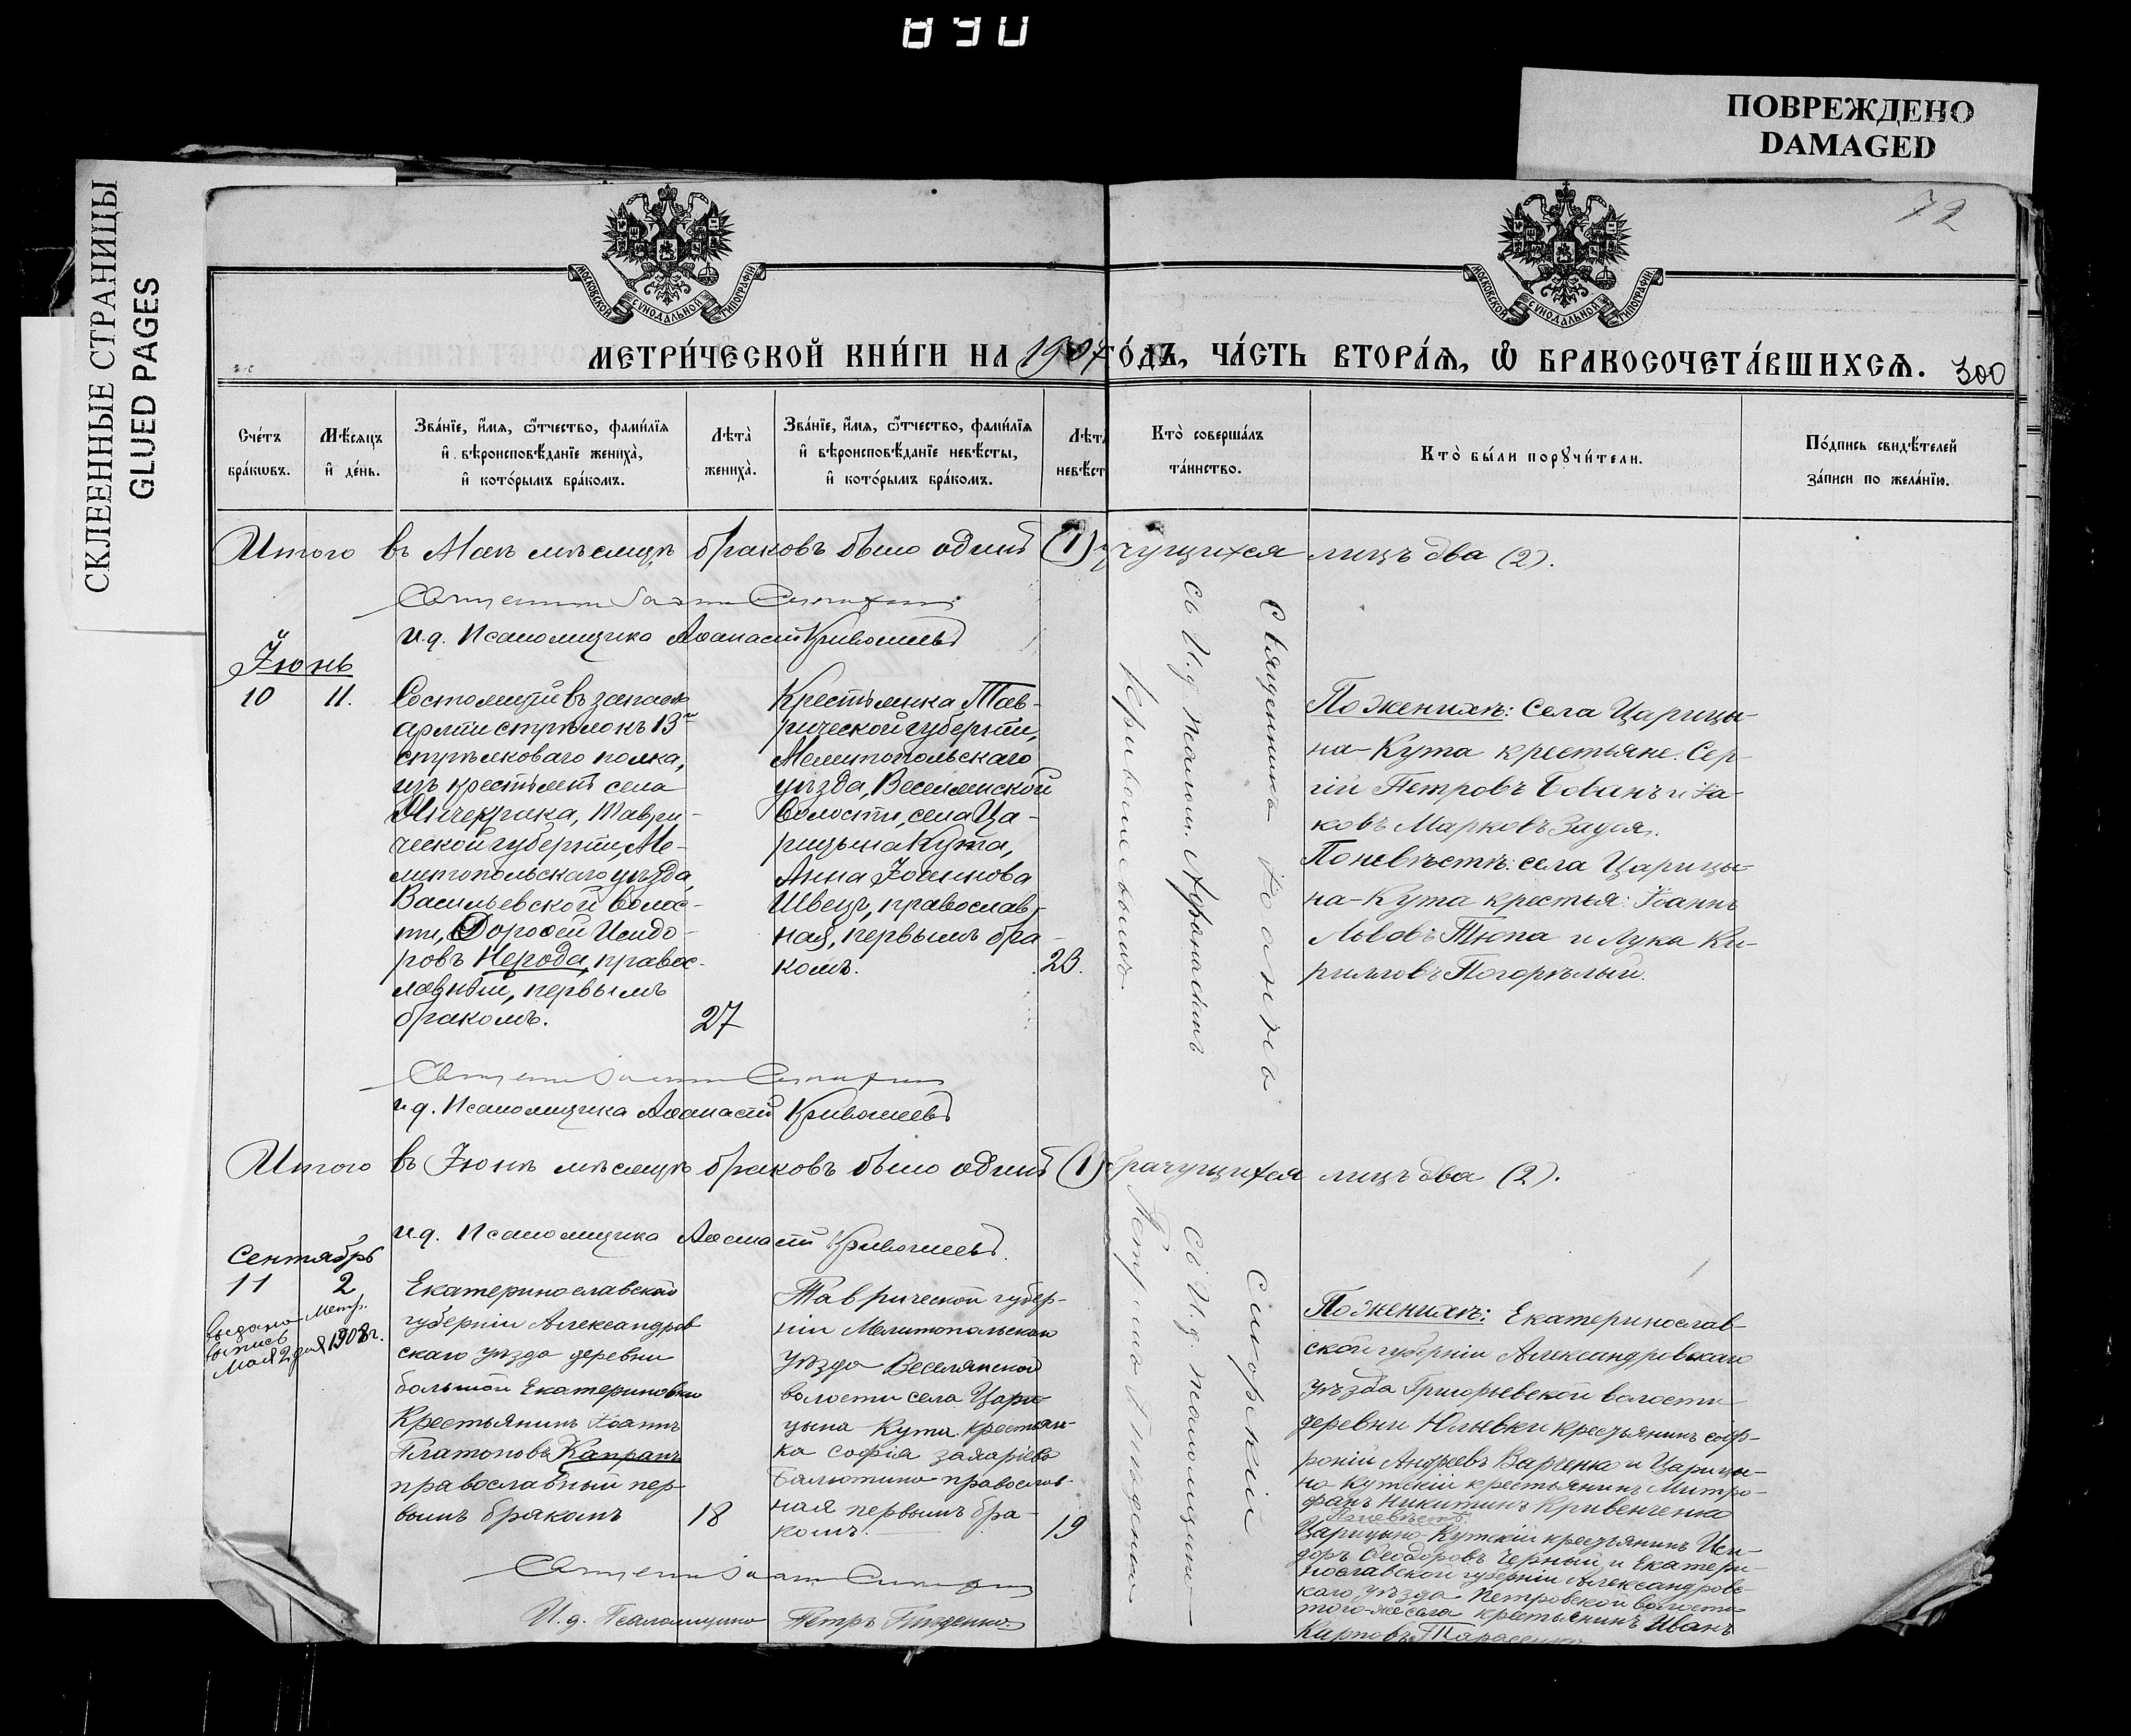 890
ПОВРЕЖДЕНО
DAMAGED
СКЛЕЕННЫЕ СТРАНИЦЫ
GLUED PAGES
72
МОСКОВСКОЙ СѴНОДАЛЬНОЙ ТИПОГРАФІИ
МОСКОВСКОЙ СѴНОДАЛЬНОЙ ТИПОГРАФІИ
МЕТРИ́ЧЕСКОЙ КНИ́ГИ НА 1907 ГО́ДЪ, ЧА́СТЬ ВТОРА́Ѧ, Ѿ БРАКОСОЧЕТА́ВШИХСѦ.
300
Сче́тъ
бра́кѡвъ.
Мѣ́сяцъ
и҆ де́нь.
Зва́нїе, и҆́мѧ, ѻ҆́тчество, фами́лїѧ
и҆ вѣроисповѣ́данїе жениха̀,
и҆ кото́рымъ бра́комъ.
Лѣта̀
жениха̀.
Зва́нїе, и҆́мѧ, ѻ҆́тчество, фами́лїѧ
и҆ вѣроисповѣ́данїе невѣ́сты,
и҆ кото́рымъ бра́комъ.
Лѣта̀
невѣ́ст
Кто̀ соверша́лъ
та́инство.
Кто̀ бы́ли порꙋчи́тели.
По́дпись свидѣ́телей
за́писи по жела́нїю.
Итого въ Маѣ мѣсяцѣ браковъ было одинъ (1) чущихся лицъ два (2).
и.д. Псаломщика Аѳанасій Кривошеевъ
Іюнь
10 11.
Состоящій въ запасѣ
арміи стрѣлокъ 13го
стрѣлковаго полка,
изъ крестьянъ села
Таври-
ческой губерніи, Ме-
литопольскаго уѣзда,
Васильевской волос-
ти, Дороѳей Исидо-
ровъ Нерода, правос-
лавный, первымъ
бракомъ.
27
Крестьянка Тав-
рической губерніи,
Мелитопольскаго
уѣзда, Веселянской
волости, села Ца-
рицына Кута,
Анна Іоакимова
Швецъ, православ-
ная, первымъ бра-
комъ.
23.
Священникъ Іоаннъ Сикорскій
съ И.д. псалом. Аѳанасіемъ
Кривошеевымъ
По женихѣ: села Царицы-
на-Кута крестьяне: Сер-
гій Петровъ Бованъ и Іа-
ковъ Марковъ
По невѣстѣ: села Царицы-
на-Кута крестья: Іоаннъ
Львовъ Тюпа и Лука Ки-
рилловъ Погорѣлый.
и.д. Псаломщика Аѳанасій Кривошеевъ
Итого въ Іюнѣ мѣсяцѣ браковъ было одинъ (1) брачущихся лицъ два (2).
и.д. Псаломщика Аѳанасій Кривошеевъ.
Сентябрь
11 2
выдана метр.
выпись
мая 2 дня 1908 г.
Екатеринославской
губерніи Александров
скаго уѣзда деревни
большой Екатериновки
Крестьянинъ Іоаннъ
Платоновъ Капранъ
православный пер-
вымъ бракомъ
18
Таврической губер-
ніи Мелитопольскаго
уѣзда Веселянской
волости села Цари
цына Кута крестьян-
ка Софія Захаріева
Балютина православ-
ная первымъ бра-
комъ.
19
Съ И.д. псаломщика
Петромъ
По женихѣ: Екатеринослав-
ской губерніи Александровскаго
уѣзда Григорьевской волости
деревни Юльевки крестьянинъ Соф-
роній Андреевъ Варченко и Царицы-
но Кутскій крестьянинъ Митро-
фанъ Никитинъ Кривенченко
По невѣстѣ:
Царицыно-Кутскій крестьянинъ Иси-
доръ Ѳеодоровъ Черный и Екатери-
нославской губерніи Александровс-
каго уѣзда Петровской волости
того-же села крестьянинъ Иванъ
Карповъ Тарасенко
И.д. Псаломщика Петръ